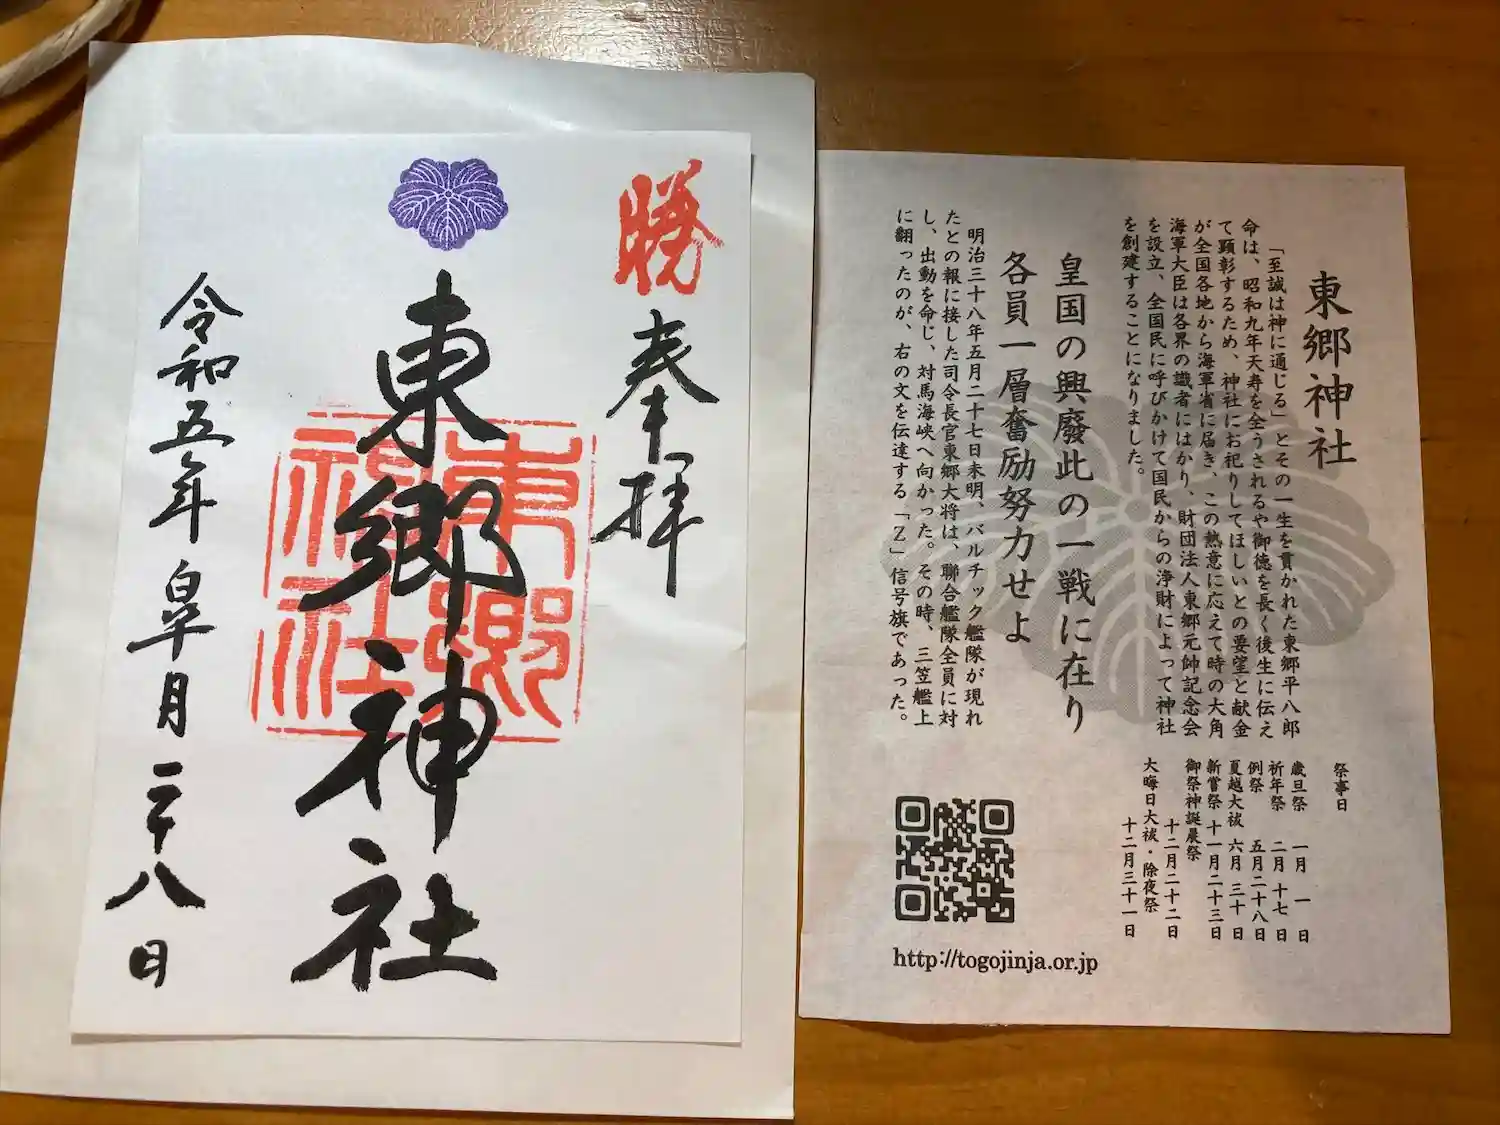 勝
奉拝
東郷神社
東郷
神社
令和五年皐月二十八日
東郷神社
「至誠は神に通じる」とその一生を貫かれた東郷平八郎
命は、昭和九年天寿を全うされるや御徳を長く後生に伝え
て顕彰するため、神社にお祀りしてほしいとの要望と献金
が全国各地から海軍省に届き、この熱意に応えて時の大角
海軍大臣は各界の識者にはかり、財団法人東郷元帥記念会
を設立、全国民に呼びかけて国民からの浄財によって神社
を創建することになりました。
皇国の興廢此の一戦に在り
各員一層奮励努力せよ
明治三十八年五月二十七日未明、バルチック艦隊が現れ
たとの報に接した司令長官東郷大将は、聯合艦隊全員に対
し、出動を命じ、対馬海峡へ向かった。その時、三笠艦上
に翻ったのが、右の文を伝達する「Z」信号旗であった。
祭事日
歳旦祭 一月 一日
祈年祭 二月十七日
例祭 五月二十八日
夏越大祓 六月三十日
新嘗祭 十一月二十三日
御祭神誕晨祭
十二月二十二日
大晦日大祓・除夜祭
十二月三十一日
http://togojinja.or.jp